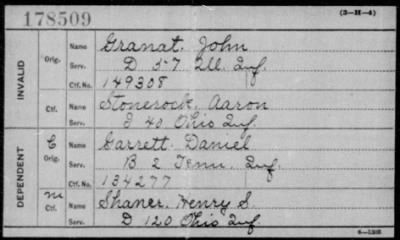 178509 (3-H-4)
INVALID
Orig. Name Granat, John
Serv. D 57 Ill. Inf.
Ctf. No. 149308
Ctf. Name Stonerock, Aaron
Serv. I 40 Ohio Inf.
DEPENDENT
C Orig. Name Garrett, Daniel
Serv. B 2 Tenn. Inf.
Ctf. No. 134277
M Ctf. Name Shaner, Henry S.
Serv. D 120 Ohio Inf.